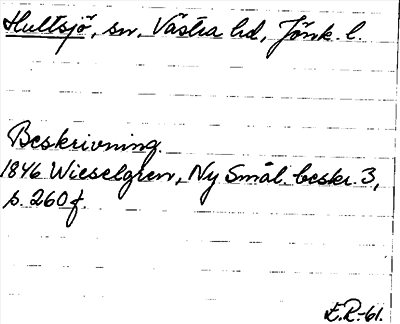 Hultsjö, sn, Västra hd, Jönk. l.
Beskrivning.
1846 Wieselgren, Ny Smål. beskr. 3,
s. 260 f.
E.R.-61.